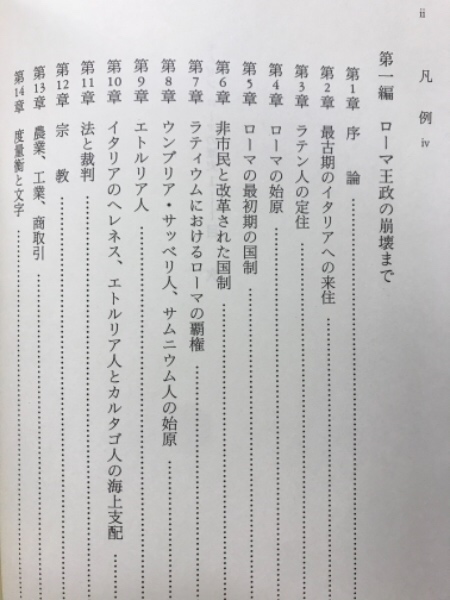 ii
凡 例 iv
第一編 ローマ王政の崩壊まで
第1章 序 論
第2章 最古期のイタリアへの来住
第3章 ラテン人の定住
第4章 ローマの始原
第5章 ローマの最初期の国制
第6章 非市民と改革された国制
第7章 ラティウムにおけるローマの覇権
第8章 ウンブリア・サッベリ人、サムニウム人の始原
第9章 エトルリア人
第10章 イタリアのヘレネス、エトルリア人とカルタゴ人の海上支配
第11章 法と裁判
第12章 宗 教
第13章 農業、工業、商取引
第14章 度量衡と文字